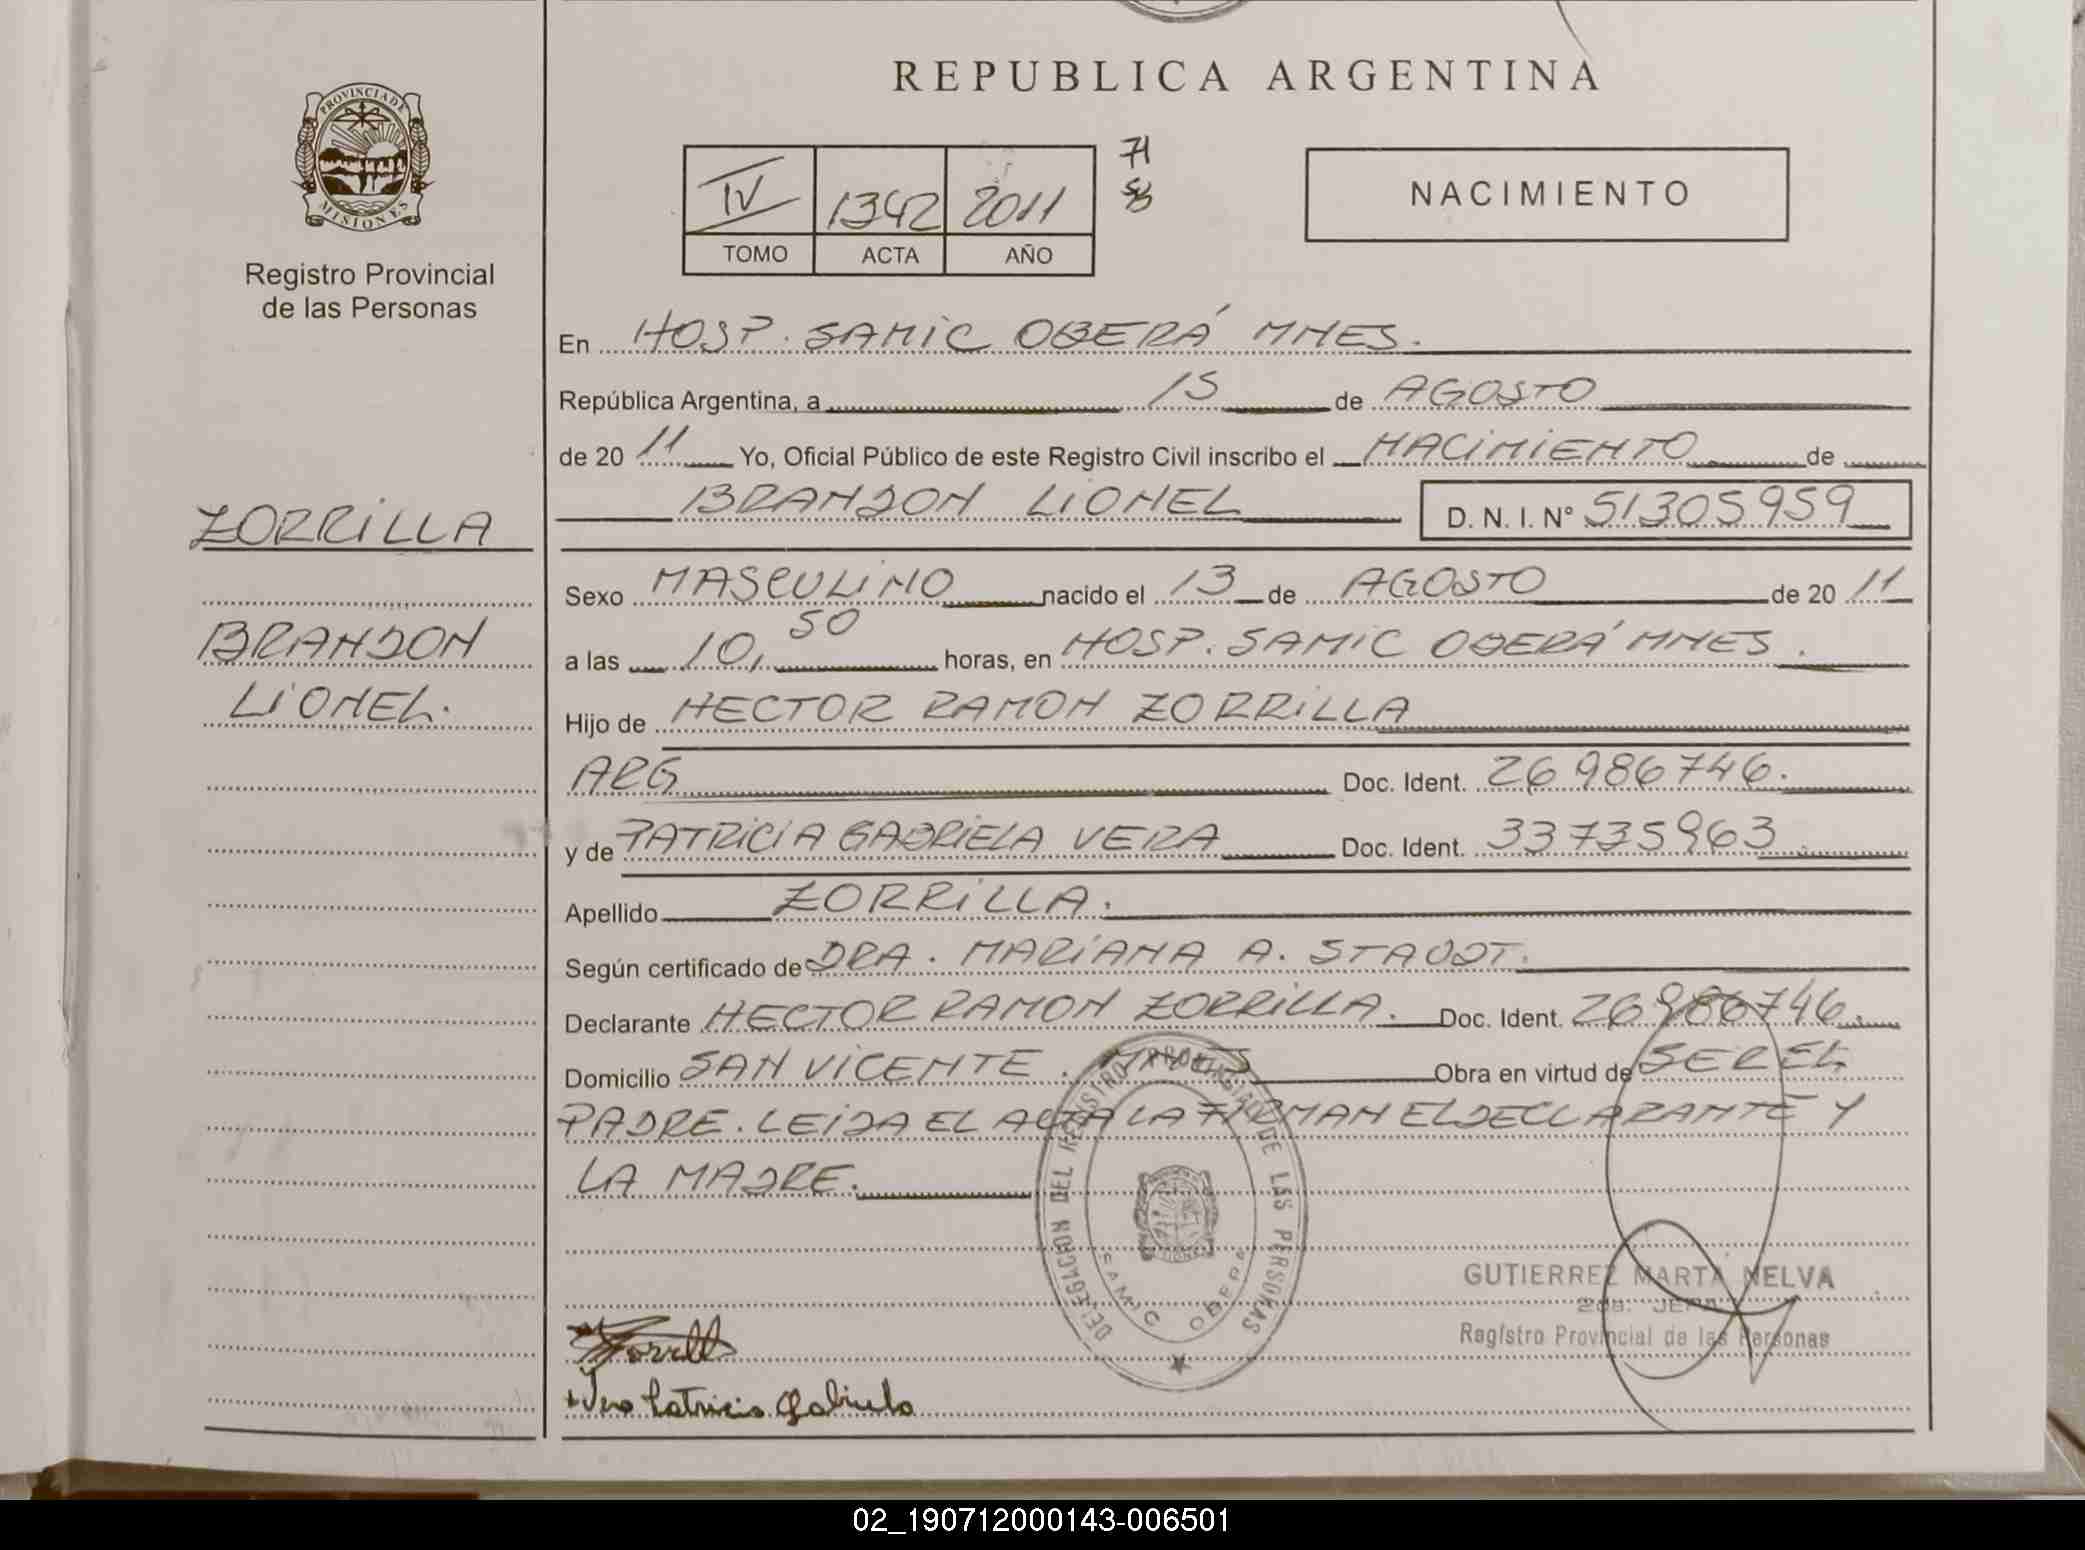 REPUBLICA ARGENTINA
PROVINCIA DE
MISIONES
Registro Provincial
de las Personas
IV 1342 2011
TOMO ACTA AÑO
71
NACIMIENTO
En HOSP. SAMIC OBERÁ MNES.
República Argentina, a 15 de AGOSTO
de 20 11 Yo, Oficial Público de este Registro Civil inscribo el NACIMIENTO de
BRANDON LIONEL D. N. I. N° 51305959
ZORRILLA
BRANDON
LIONEL.
Sexo MASCULINO nacido el 13 de AGOSTO de 20 11
a las 10,50 horas, en HOSP. SAMIC OBERÁ MNES.
Hijo de HECTOR RAMON ZORRILLA
ARG Doc. Ident. 26986746.
y de PATRICIA GABRIELA VERA Doc. Ident. 33735963
Apellido ZORRILLA.
Según certificado de DRA. MARIANA A. STAUDT.
Declarante HECTOR RAMON ZORRILLA. Doc. Ident. 26986746.
Domicilio SAN VICENTE. MNES Obra en virtud de SER EL
PADRE. LEIDA EL ACTA LA FIRMAN EL DECLARANTE Y
LA MADRE.
DELEGACION DEL REGISTRO PROVINCIAL DE LAS PERSONAS
SAMIC OBERA
GUTIERREZ MARTA NELVA
2da. JEFA
Registro Provincial de las Personas
Zorrilla
Vera Patricia Gabriela
02_190712000143-006501